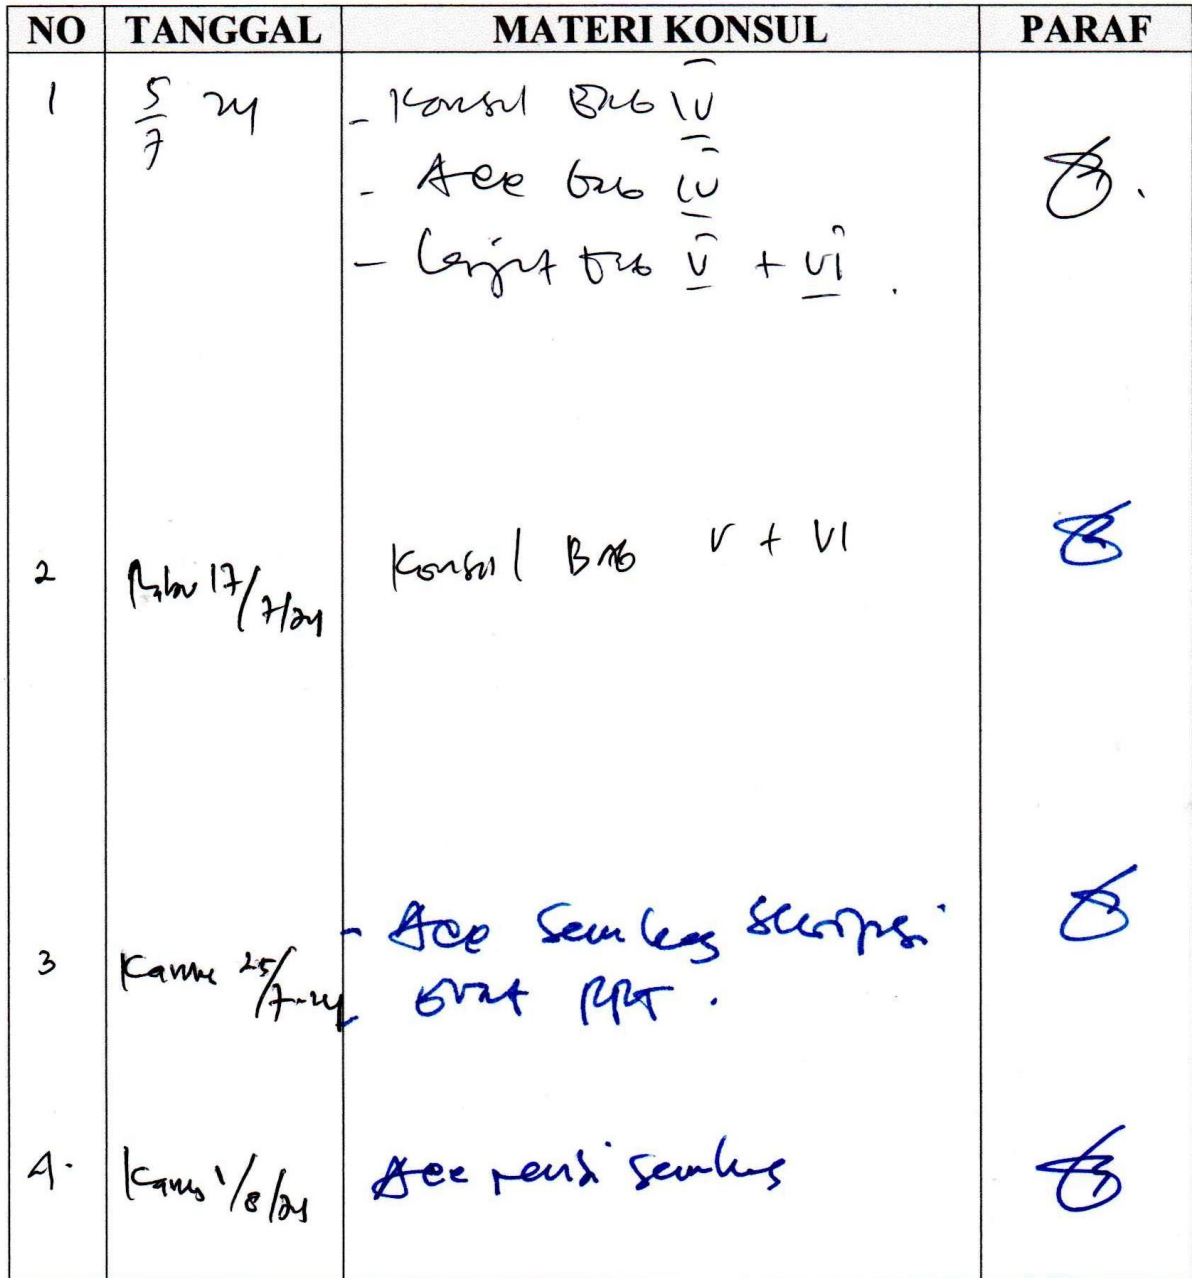 NO TANGGAL MATERI KONSUL PARAF
1 5/7 24 - Konsul Bab IV
- Acc bab IV
- Lanjut bab V + VI.
2 Rabu 17/7/24 Konsul Bab V + VI
3 Kamis 25/7-24 - Acc Semhas Skripsi
- Buat PPT.
4. Kamis 1/8/24 Acc revisi semhas